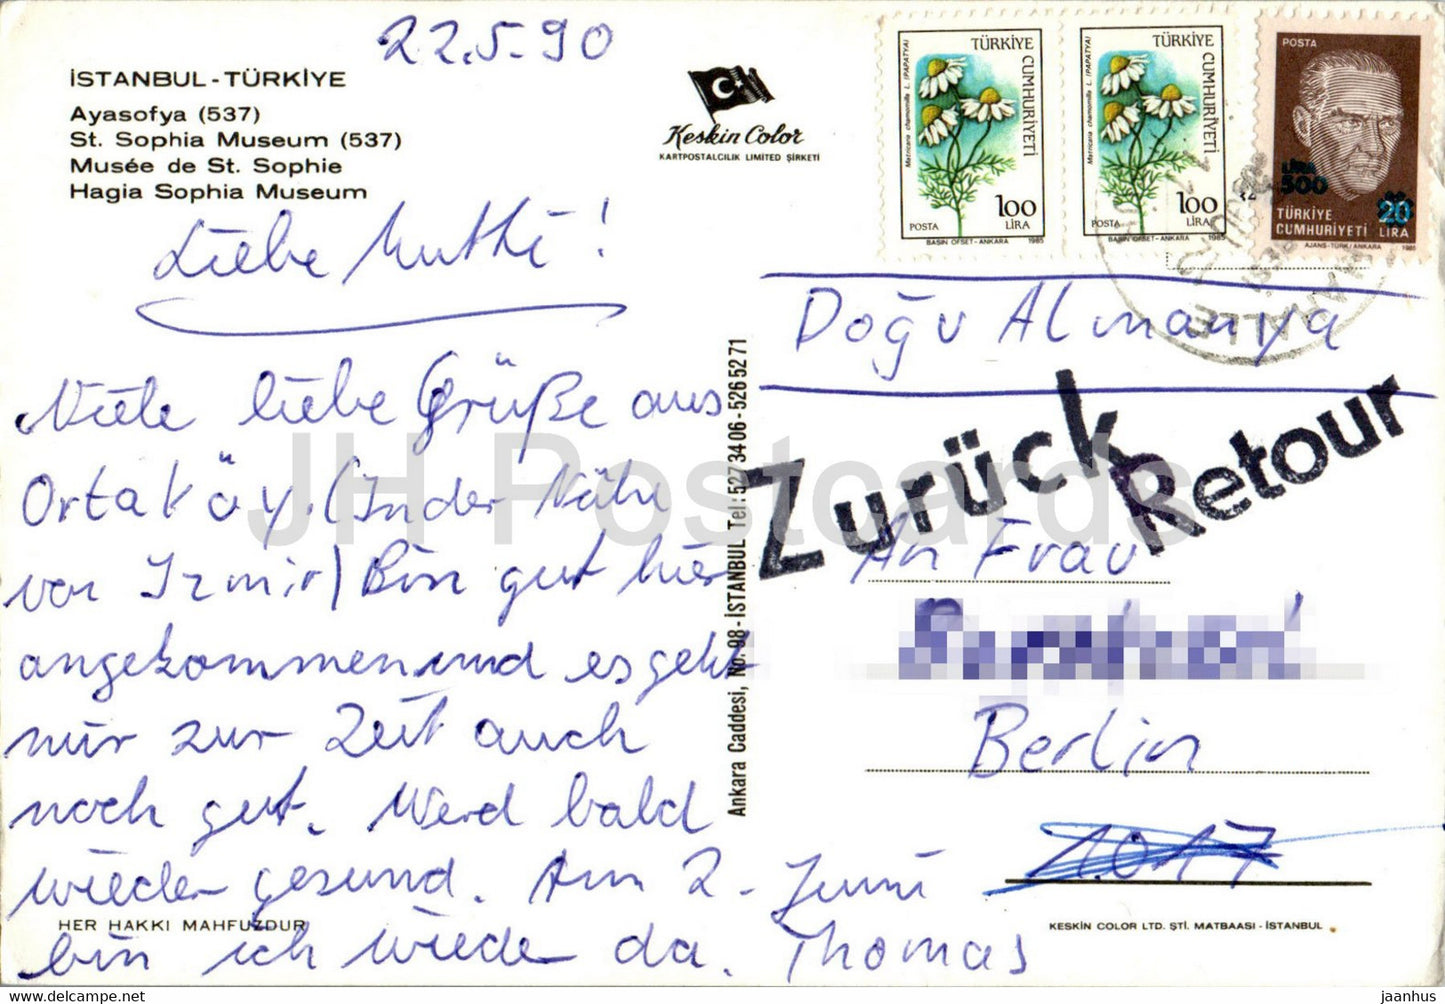 22.5.90
İSTANBUL - TÜRKİYE
Ayasofya (537)
St. Sophia Museum (537)
Musée de St. Sophie
Hagia Sophia Museum
Keskin Color
KARTPOSTALCILIK LIMITED ŞİRKETİ
Matricaria chamomilla L. (PAPATYA)
TÜRKİYE CUMHURİYETİ
100
POSTA LİRA
BASIN OFSET - ANKARA 1985
Matricaria chamomilla L. (PAPATYA)
TÜRKİYE CUMHURİYETİ
100
POSTA LİRA
BASIN OFSET - ANKARA 1985
POSTA
LİRA
500
20
TÜRKİYE
CUMHURİYETİ LİRA
AJANS-TÜRK/ANKARA 1985
Liebe Mutti!
Viele liebe Grüße aus
Ortaköy. (In der Nähe
von Izmir) Bin gut hier
angekommen und es geht
mir zur Zeit auch
noch gut. Werd bald
wieder gesund. Am 2. Juni
bin ich wieder da. Thomas
HER HAKKI MAHFUZDUR
Ankara Caddesi, No. 98 - İSTANBUL Tel: 527 34 06 - 526 52 71
Doğu Almanya
Zurück
Retour
An Frau
Berlin
1017
KESKIN COLOR LTD. ŞTİ. MATBAASI - İSTANBUL
JH Postcards
hip stamp.com
jaanhus